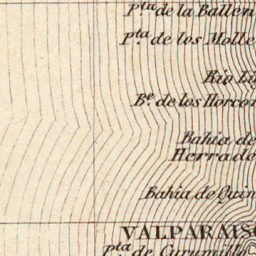 P.ta de la Ballen
P.ta de los Molle
Rio Li
B.e de los Horcon
Bahia de
Herrado
Bahia de Quin
VALPARAISO
P.ta de Curumilla